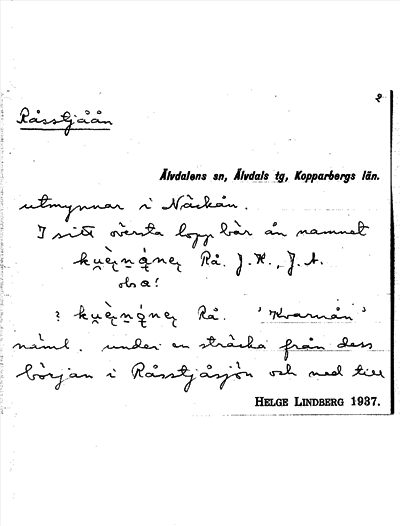 2
Råsstjåån
Älvdalens sn, Älvdals tg, Kopparbergs län.
utmynnar i Näckån.
I sitt översta lopp bär ån namnet
Rå. J. H., J. A.
obs a!
? Rå. 'Kvarnån'
näml. under en sträcka från dess
början i Råsstjåsjön och ned till
HELGE LINDBERG 1937.